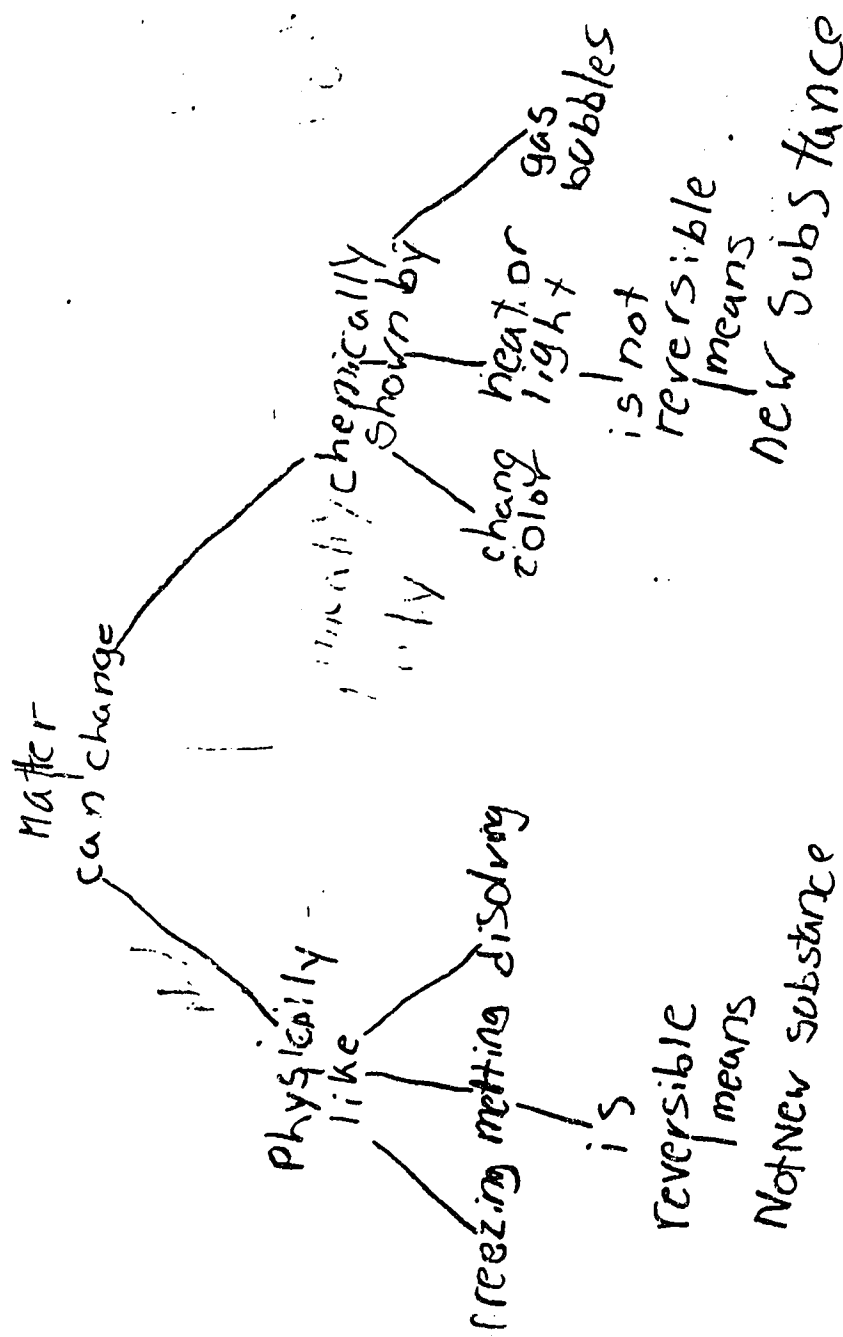 Matter
can change
Physically
like
freezing melting disolving
is
reversible
means
Not New substance
chemically
shown by
chang
color
heat or
light
gas
bubbles
is not
reversible
means
new substance